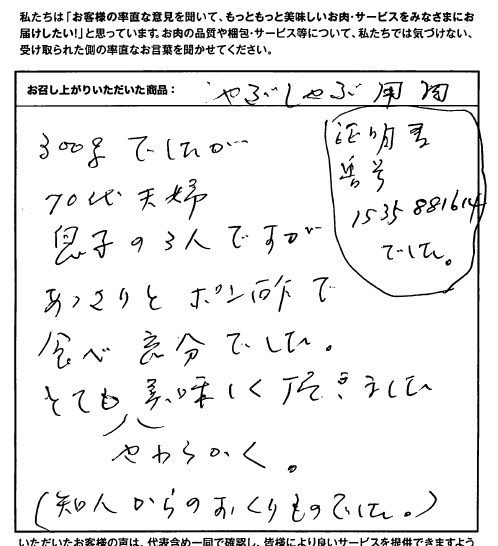 私たちは「お客様の率直な意見を聞いて、もっともっと美味しいお肉・サービスをみなさまにお
届けしたい!」と思っています。お肉の品質や梱包・サービス等について、私たちでは気づけない、
受け取られた側の率直なお言葉を聞かせてください。
お召し上がりいただいた商品:しゃぶしゃぶ用肉
300gでしたが
70代夫婦
息子の3人ですが
あっさりとポン酢で
食べ充分でした。
とても美味しく頂きました
やわらかく。
(知人からのおくりものでした。)
証明書
番号
1535881614
でした。
いただいたお客様の声は、代表含め一同で確認し、皆様により良いサービスを提供できますよう